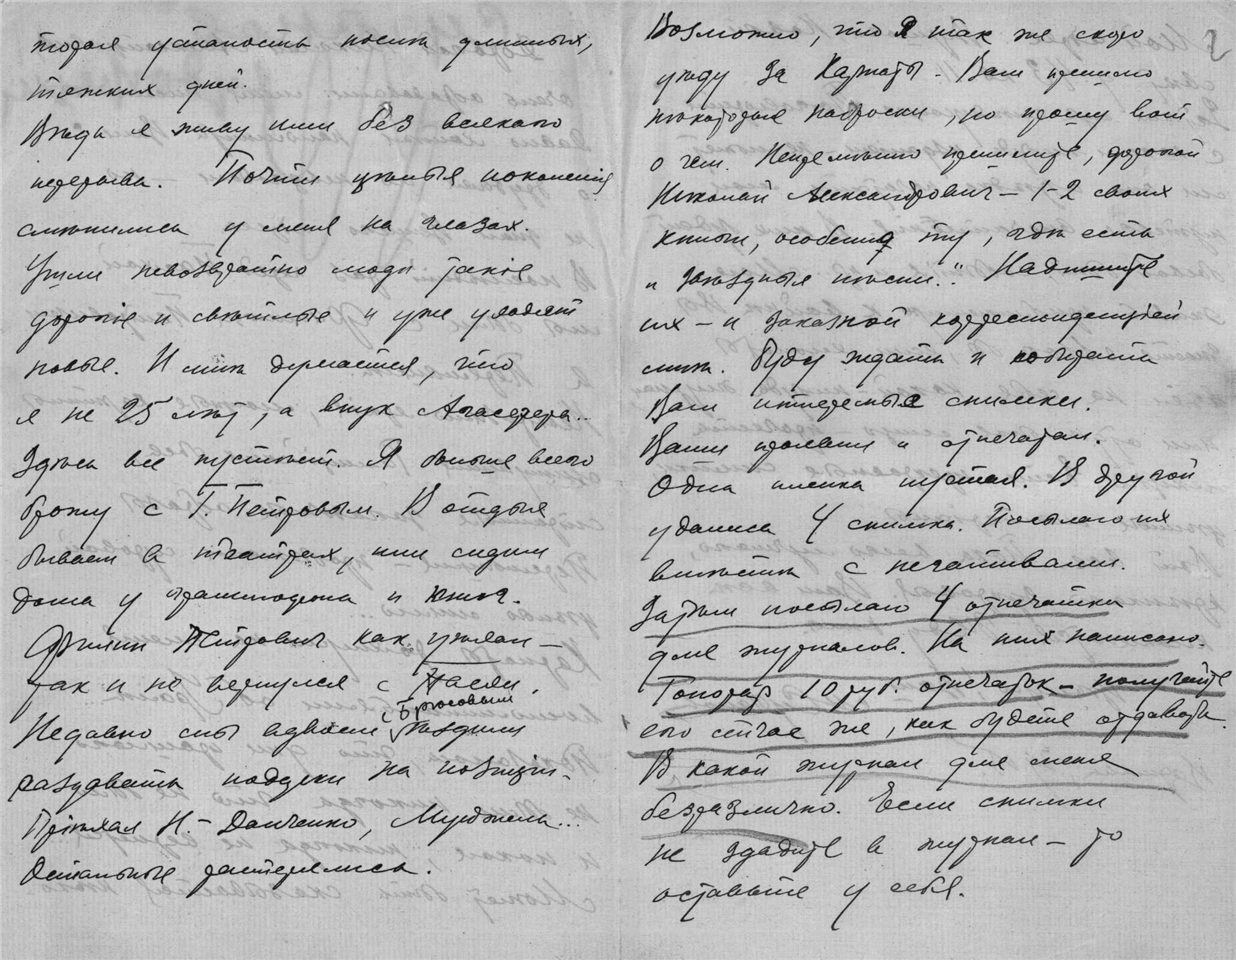 торая усталость после длинных,
тяжких дней.
Ведь я живу или без всякаго
перерыва. Почти целыя поколения
сменились у меня на глазах.
Ушли невозвратно люди такие
дорогие и светлые и уже уходят
новые. И мне думается, что
я не 25 лет, а внук Агасфера...
Здесь все пустынно. Я больше всего
брожу с Г. Петровым. В отдых
бываем в театрах, или сидим
дома у граммофона и
Филип Петрович как уехал —
так и не вернулся с
Недавно мы вдвоем с Брюсовым ездили
раздавать подарки на позиции.
Приехал Н.-Данченко, Мурджели...
Остальные растерялись.
Возможно, что я так же скоро
уеду за Карпаты. Вам пришлю
некоторые наброски, но прошу вот
о чем. Немедленно пришлите, дорогой
Николай Александрович — 1-2 своих
книги, особенно ту, где есть
"звездныя песни". Надпишите
их — и заказной корреспонденцией
мне. Буду ждать и
Вам интересные снимки.
Ваши проявил и отпечатал.
Одна пленка пустая. В другой
удались 4 снимка. Посылаю их
вместе с негативами.
Затем посылаю 4 отпечатка
для журналов. На них написано.
Гонорар 10 руб. отпечаток — получайте
его сейчас же, как будете отдавать.
В какой журнал для меня
безразлично. Если снимки
не здадите в журнал — то
оставьте у себя.